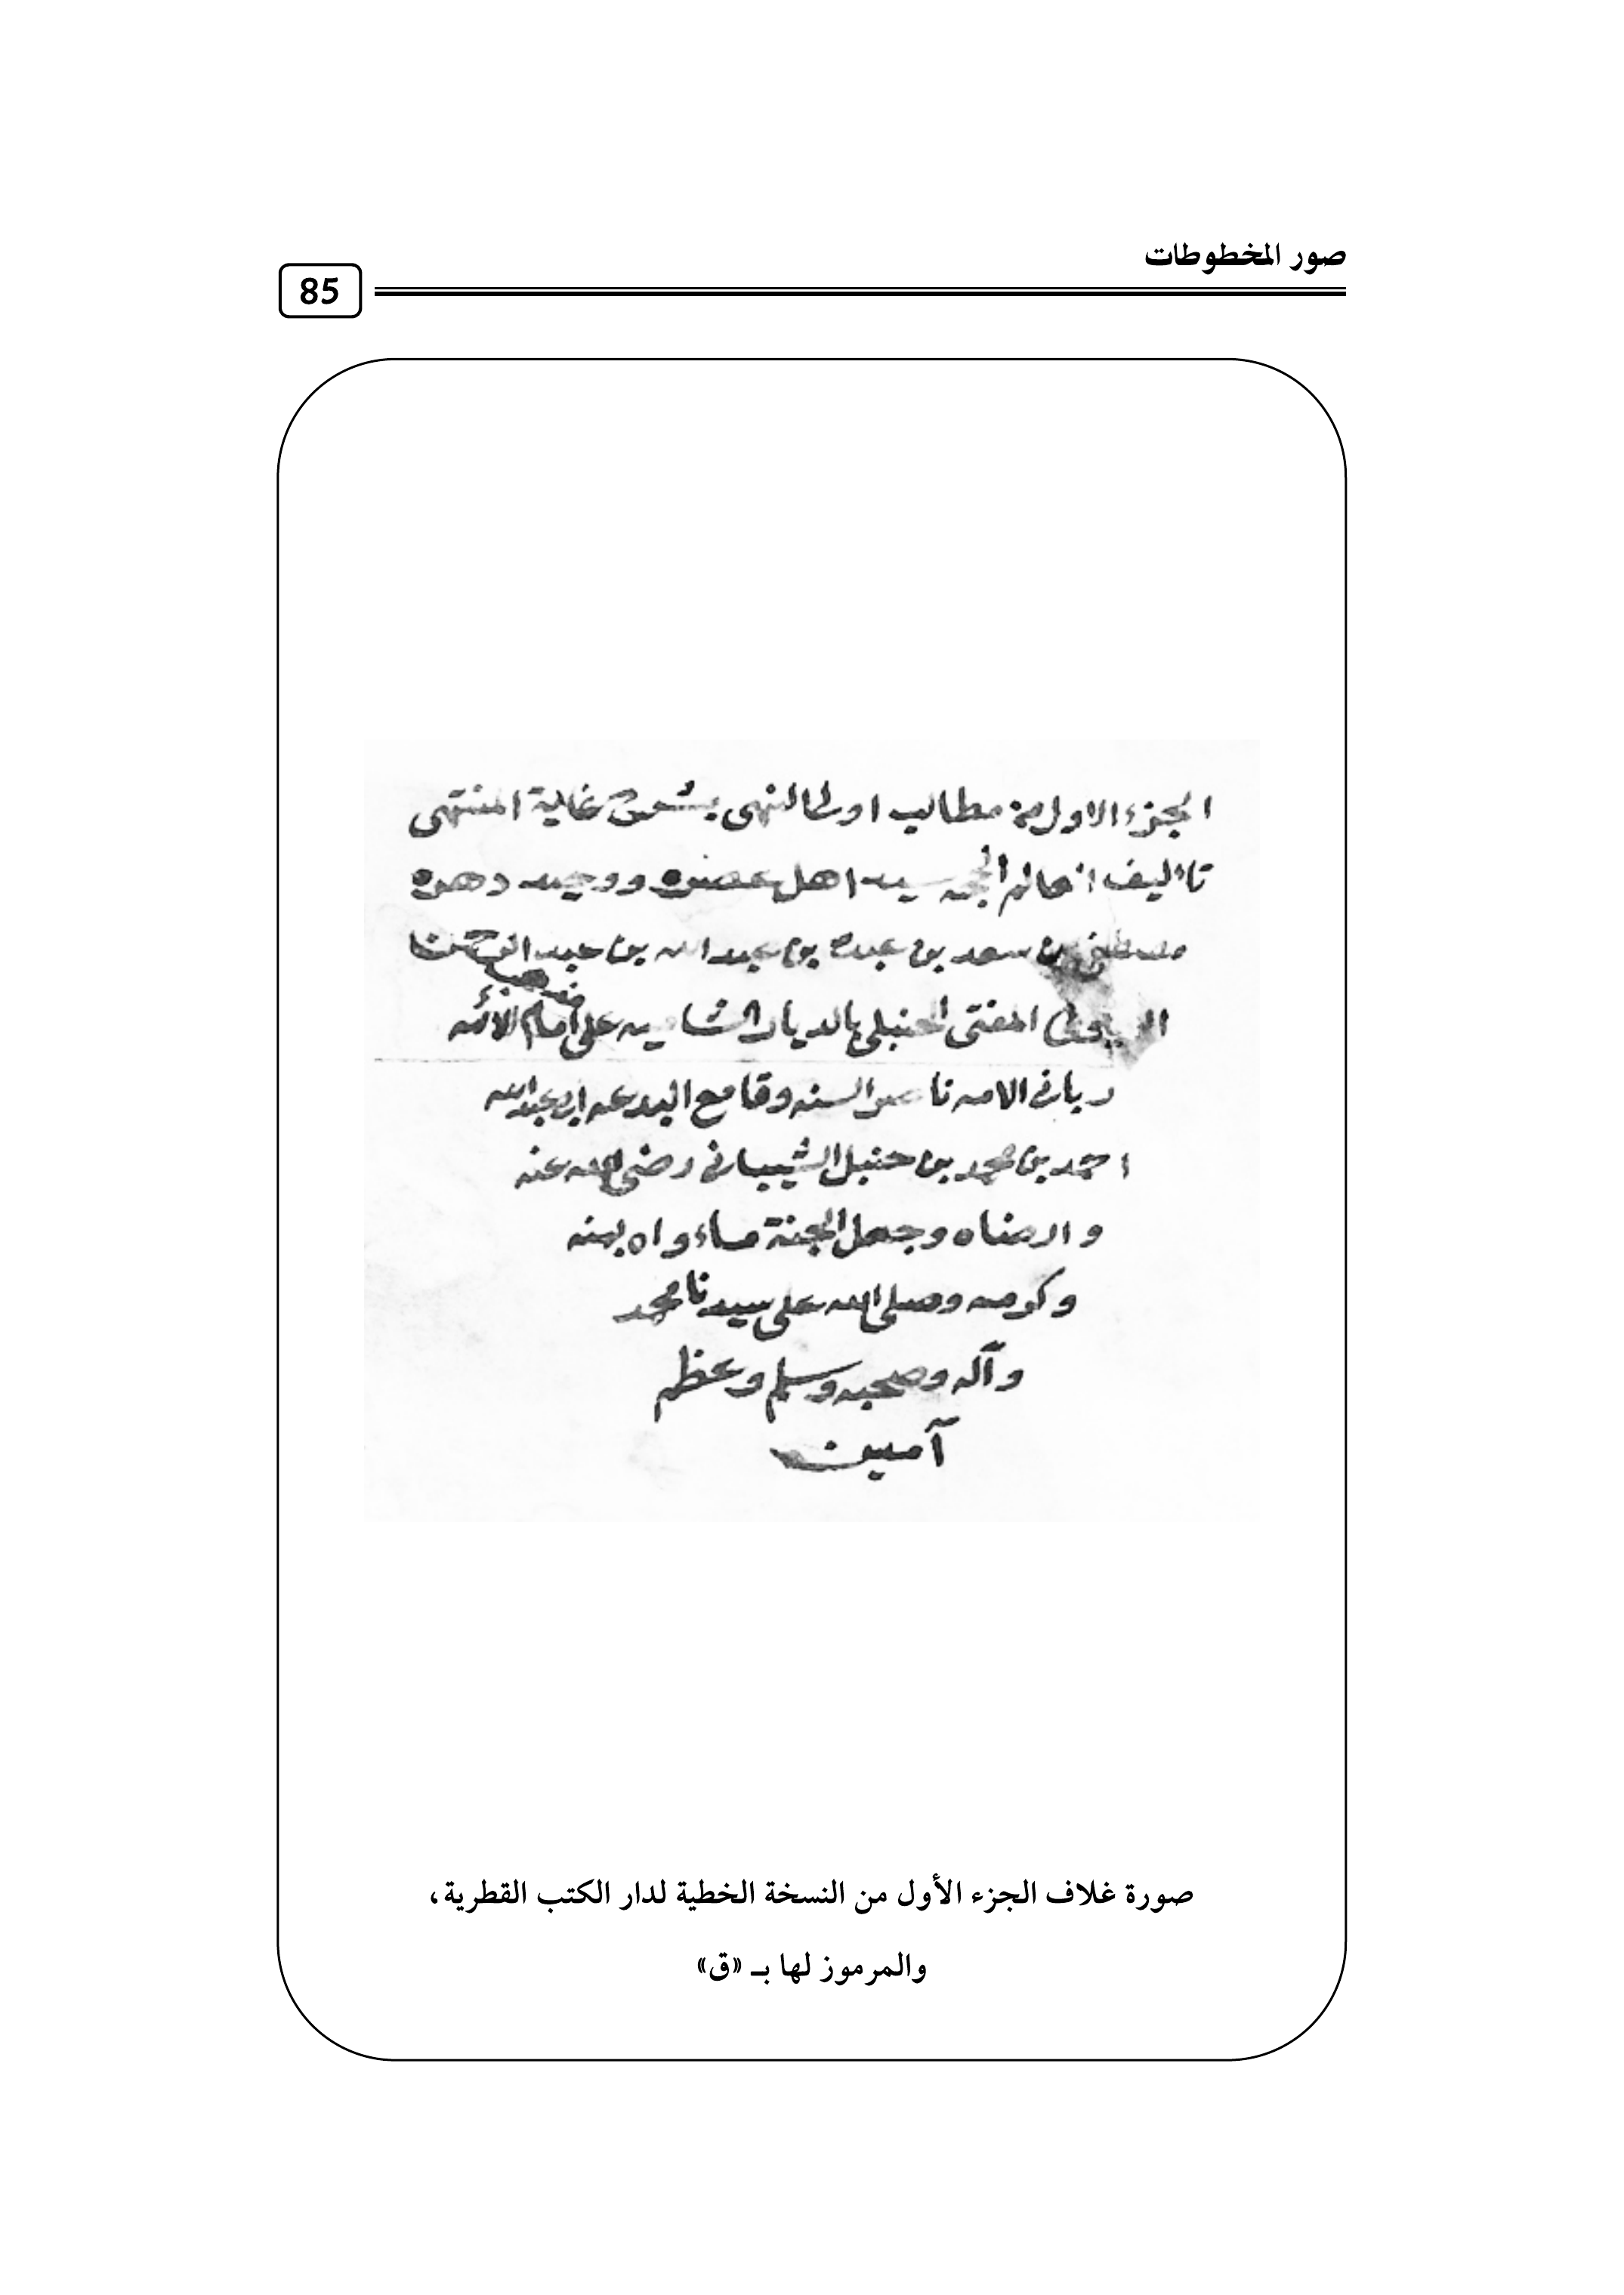 صور المخطوطات
85
الجزء الاول من مطالب اولى النهى بشرح غاية المنتهى
تأليف العالم سيد اهل عصره ووحيد دهره
مصطفى بن سعد بن عبده بن عبد الله بن عبد الرحمن
المفتى الحنبلى بالديار الشاميه على مذهب امام الائمه
ربانى الامه ناصر السنه وقامع البدعه ابى عبد الله
احمد بن محمد بن حنبل الشيبانى رضى الله عنه
وارضاه وجعل الجنة مأواه بمنه
وكرمه وصلى الله على سيدنا محمد
وآله وصحبه وسلم وعظم
آمين
صورة غلاف الجزء الأول من النسخة الخطية لدار الكتب القطرية،
والمرموز لها بـ «ق»